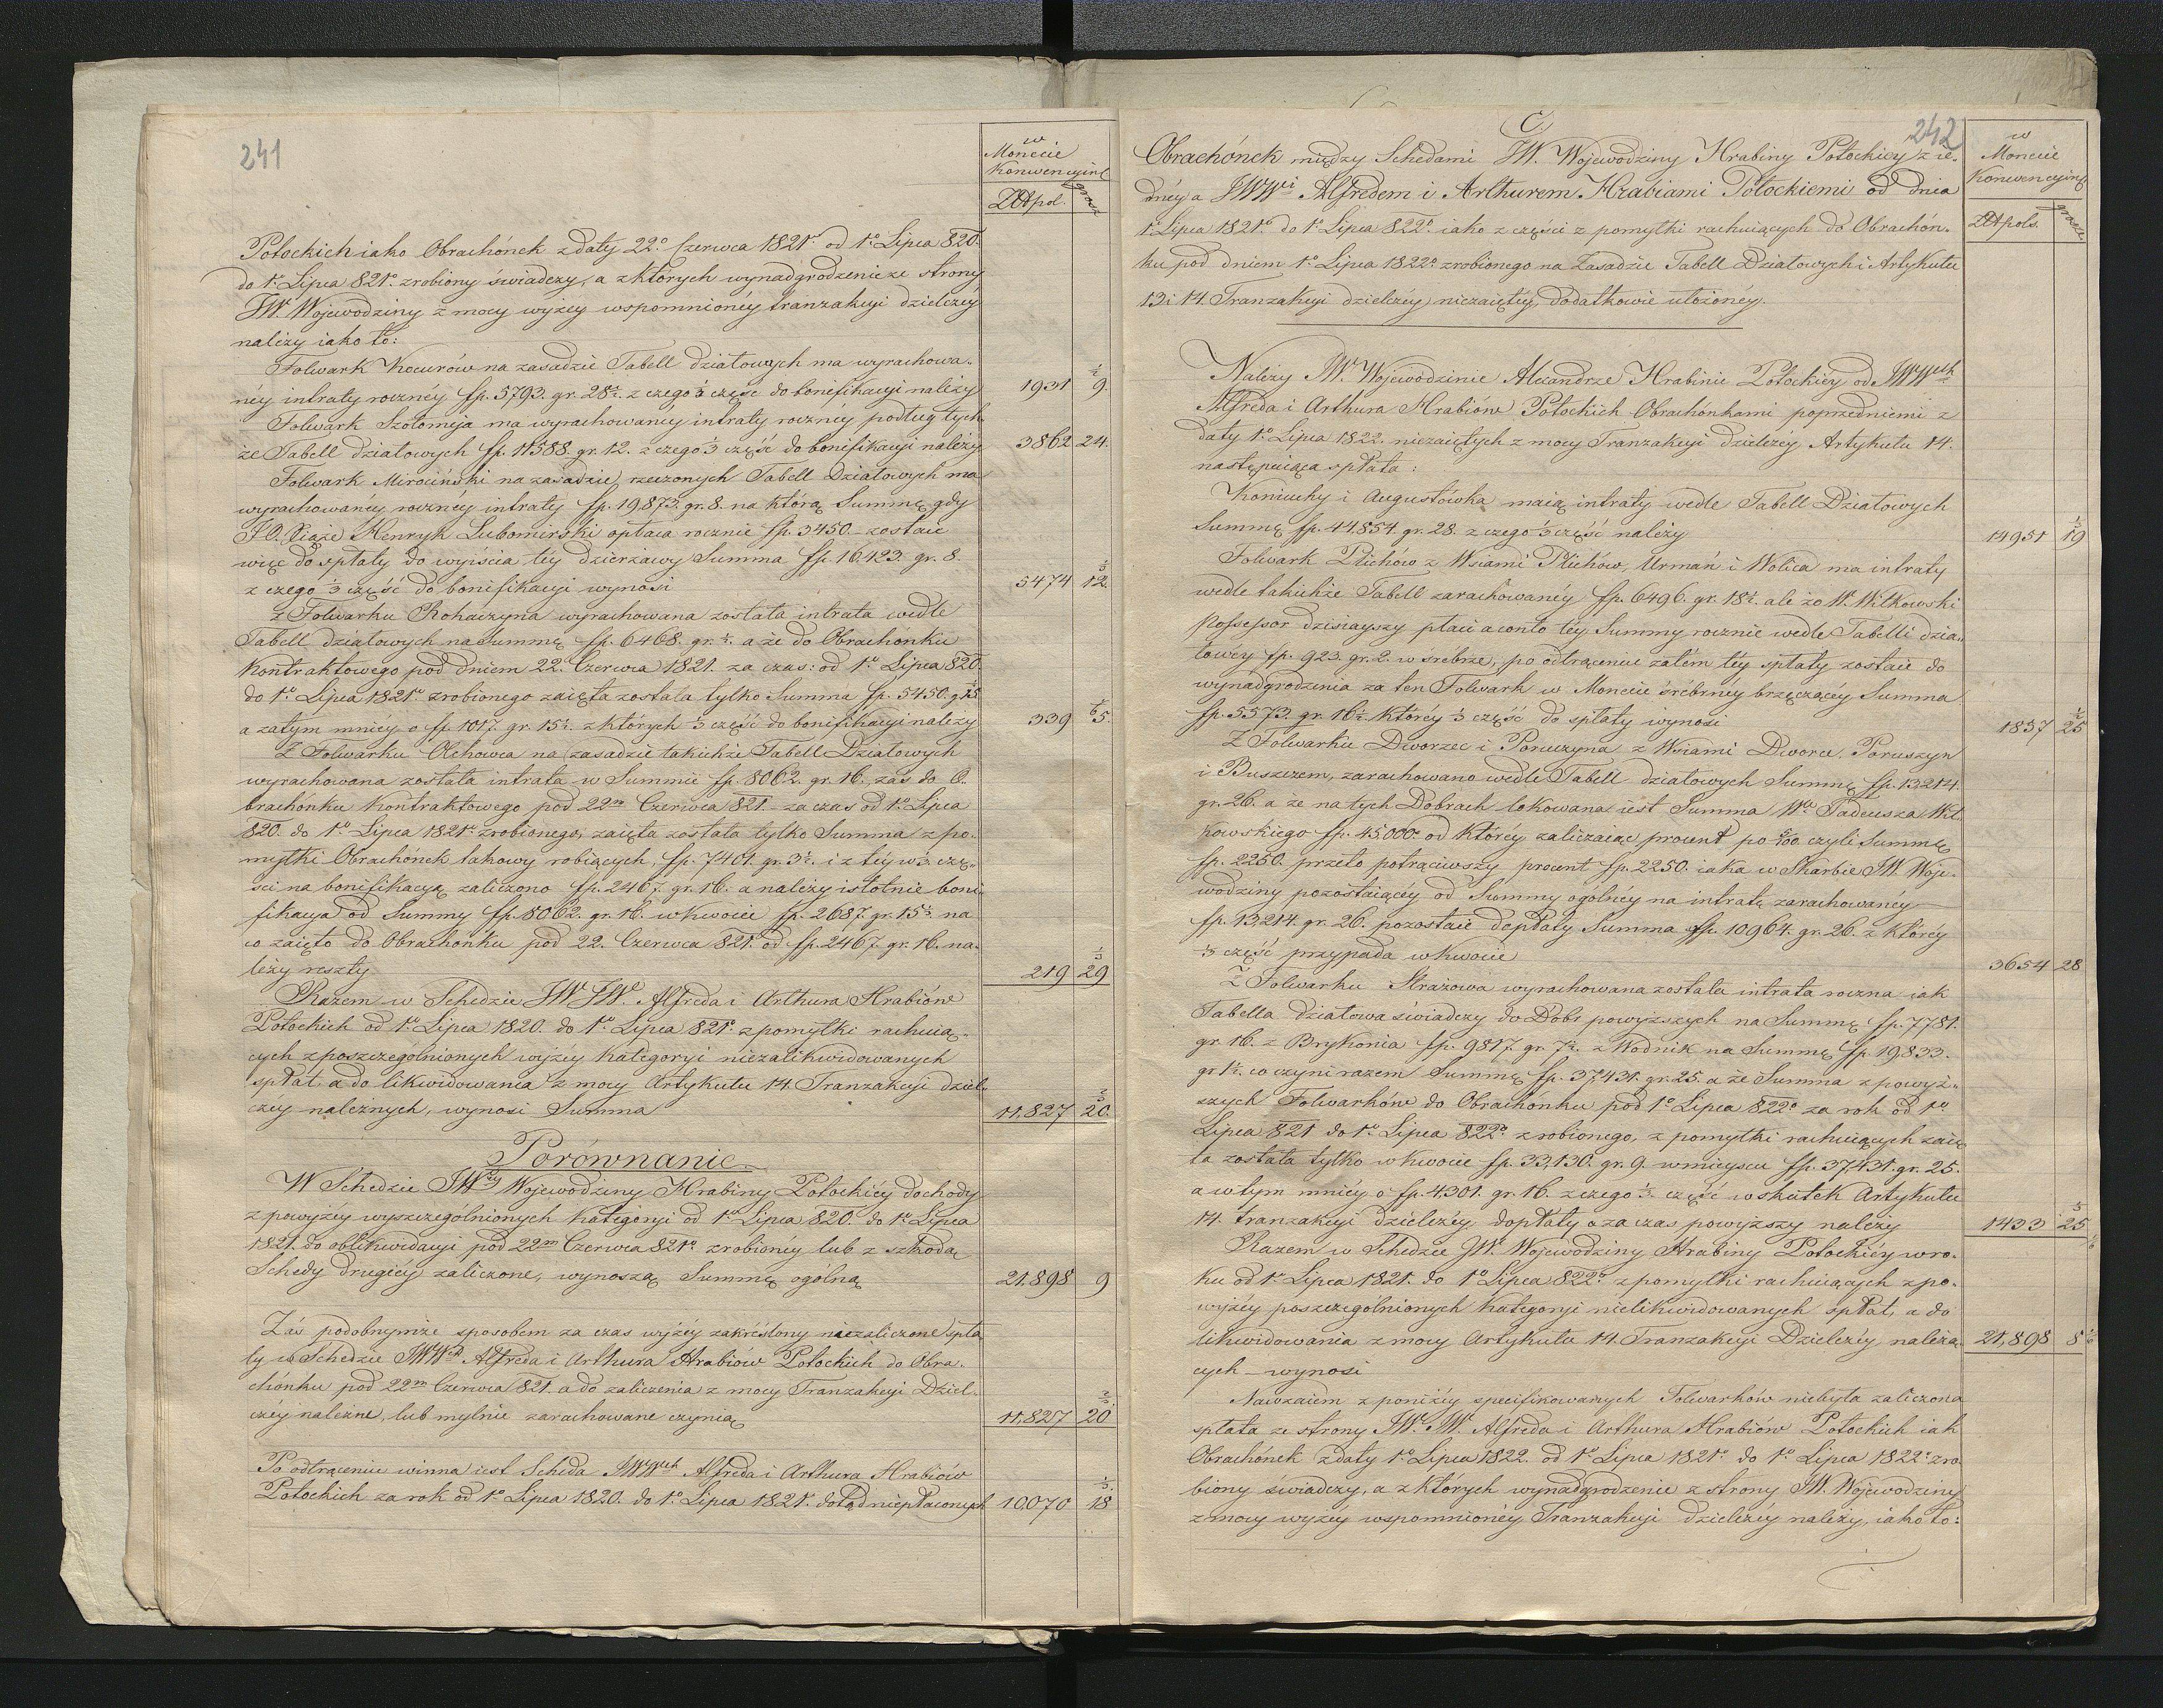 241
w
Monecie
Konwencyjn:
Złt pol. grosz
Potockich iako Obrachónek z daty 22º Czerwca 1821º od 1º Lipca 820.
do 1º Lipca 821º zrobiony świadczy, a z których wynadgrodzenie ze strony
JW. Wojewodziny z mocy wyżey wspomnionéy tranzakcyi dzielczéy
należy iako to:
Folwark Kocurów na zasadzie Tabell działowych ma wyrachowa-
néy intraty rocznéy fp. 5793. gr. 28½. z czego ⅓ część do bonifikacyi należy 1931 9½.
Folwark Szołomyja ma wyrachowanéy intraty rocznéy podług tych-
że Tabell działowych fp. 11588. gr. 12. z czego ⅓ część do bonifikacyi należy 3862 24.
Folwark Mirociński na zasadzie rzeczonych Tabell Działowych ma
wyrachowanéy rocznéy intraty fp. 19,873. gr. 8. na którą Summę gdy
J.O. Xiąże Henryk Lubomirski opłaca rocznie fp. 3450.- zostaie
więc do spłaty do wyiścia téy dzierżawy Summa fp. 16,423. gr. 8.
z czego ⅓ część do bonifikacyi wynosi 5474 12⅔
z Folwarku Rohaczyna wyrachowana została intrata wedle
Tabell działowych na Summę fp. 6468. gr. ½. a że do Obrachónku
Kontraktowego pod dniem 22º Czerwca 1821. za czas: od 1º Lipca 820.
do 1º Lipca 1821º zrobionego zaięta została tylko Summa fp. 5450. gr 15.
a zatym mniéy o fp. 1017. gr. 15½. z których ⅓ część do bonifikacyi należy 339 5⅙.
Z Folwarku Olchowca na zasadzie takichże Tabell Działowych
wyrachowana została intrata w Summie fp. 8062. gr. 16. zaś do O-
brachónku Kontraktowego pod 22m Czerwca 821.- za czas od 1º Lipca
820. do 1º Lipca 1821º zrobionego, zaięta została tylko Summa z po-
myłki Obrachónek takowy robiących, fp. 7401. gr. 3½. i z téy w ⅓ czę-
ści na bonifikacyą zaliczono fp. 2467. gr. 16. a należy istotnie boni-
fikacya od Summy fp. 8062. gr. 16. w kwocie fp. 2687. gr. 15⅓. na
co zaięto do Obrachonku pod 22. Czerwca 821. od fp. 2467. gr. 16. na-
leży reszty 219 29⅓
Razem w Schedzie JW JW. Alfreda i Arthura Hrabiów
Potockich od 1º Lipca 1820. do 1º Lipca 821º z pomyłki rachuią-
cych z poszczególnionych wyżéy kategoryi niezalikwidowanych
spłat, a do likwidowania z mocy Artykułu 14. Tranzakcyi dziel-
czéy należnych, wynosi Summa 11,827 20⅔.
Porównanie
W Schedzie JWéy Wojewodziny Hrabiny Potockiéy dochody
z powyżéy wyszczególnionych kategoryi od 1º Lipca 820. do 1º Lipca
1821. do oblikwidacyi pod 22m Czerwca 821º zrobionéy lub z szkodą
Schedy drugiéy zaliczone, wynoszą Summę ogólną 21,898 9
Zaś podobnymże sposobem za czas wyżéy zakréślony niezaliczone spła-
ty w Schedzie JWWch Alfreda i Arthura Hrabiów Potockich do Obra-
chónku pod 22m Czerwca 821. a do zaliczenia z mocy Tranzakcyi Dziel-
czéy należne, lub mylnie zarachowane czynią 11,827 20⅔.
Po odtrąceniu winna iest Scheda JWWch Alfreda i Arthura Hrabiów
Potockich za rok od 1º Lipca 1820. do 1º Lipca 1821. dotąd niepłaconych 10070 18⅓.
C
242
w
Monecie
Konwencyjn:
Złt pols. grosze
Obrachónek między Schedami JW. Wojewodziny Hrabiny Potockiéy z ie-
dnéy a JWWmi Alfredem i Arthurem Hrabiami Potockiemi od dnia
1º Lipca 1821º do 1º Lipca 822º iako z części z pomyłki rachuiących do Obrachón-
ku pod dniem 1º Lipca 1822º zrobionego na Zasadzie Tabell Działowych i Artykułu
13 i 14. Tranzakcyi dzielczéy niezaiętéy, dodatkowie ułożonéy.
Należy JW. Wojewodzinie Alexandrze Hrabinie Potockiéy od JWWch
Alfreda i Arthura Hrabiów Potockich Obrachónkami poprzedniemi z
daty 1º Lipca 1822. niezaiętych z mocy Tranzakcyi dzielczéy Artykułu 14.
następuiąca spłata:
Koniuchy i Augustówka maią intraty wedle Tabell Działowych
Summę fp. 44,854 gr. 28. z czego ⅓ część należy 14951 19⅓
Folwark Plichów z Wsiami Plichów, Urmań i Wolica ma intraty
wedle takichże Tabell zarachowanéy fp. 6496. gr. 18½. ale że W. Witkowski
Possessor dzisiayszy płaci a conto téy Summy rocznie wedle Tabelli dzia-
łowéy fp. 923. gr. 2. w srebrze, po odtrąceniu zatém téy spłaty zostaie do
wynadgrodzenia za ten Folwark w Monecie śrébrnéy brzęczącéy Summa
fp. 5573. gr. 16½. któréy ⅓ część do spłaty wynosi 1857 25½
Z Folwarku Dworzec i Poruczyna z Wsiami Dworce, Poruszyn
i Buszczem, zarachowano wedle Tabell działowych Summę fp. 13,214.
gr. 26. a że na tych Dobrach lokowana iest Summa Wo Tadeusza Wit-
kowskiego fp. 45,000. od któréy zaliczaiąc procent po 5/100 czyli Summę
fp. 2250. przeto potrąciwszy procent fp. 2250. iaka w Skarbie JW. Woje-
wodziny pozostaiącéy od Summy ogólnéy na intratę zarachowanéy
fp. 13,214. gr. 26. pozostaie dopłaty Summa fp. 10964. gr. 26. z któréy
⅓ część przypada w kwocie 3654 28
Z Folwarku Strażowa wyrachowana została intrata roczna iak
Tabella działowa świadczy do Dóbr powyższych na Summę fp. 7781.
gr. 16. z Brykonia fp. 9817. gr. 7½. z Wodnik na Summę fp. 19,833.
gr 1½. co czyni razem Summę fp. 37,431. gr. 25. a że Summa z powyż-
szych Folwarków do Obrachónku pod 1º Lipca 822º za rok od 1º
Lipca 821 do 1º Lipca 822º zrobionego, z pomyłki rachuiących zaię-
ta została tylko w kwocie fp. 33,130. gr. 9. w mieyscu fp. 37,431. gr. 25.
a w tym mniéy o fp. 4301. gr. 16. z czego ⅓ część w skutek Artykułu
14. tranzakcyi dzielczéy dopłaty a za czas powyższy należy 1433 25⅓
Razem w Schedzie JW. Wojewodziny Hrabiny Potockiéy w ro-
ku od 1º Lipca 1821. do 1º Lipca 822º z pomyłki rachuiących z po-
wyżéy poszczególnionych kategoryi nielikwidowanych spłat, a do
likwidowania z mocy Artykułu 14. Tranzakcyi Dzielczéy, należą- 21,898 8⅙
cych - wynosi
Nawzaiem z poniżéy specifikowanych Folwarków niebyła zaliczona
spłata ze strony JW. JW. Alfreda i Arthura Hrabiów Potockich iak
Obrachónek z daty 1º Lipca 1822. od 1º Lipca 1821º do 1º Lipca 1822º zro-
biony świadczy, a z których wynadgrodzenie z strony JW. Wojewodziny
z mocy wyżéy wspomnionéy Tranzakcyi dzielczéy należy, iako to: